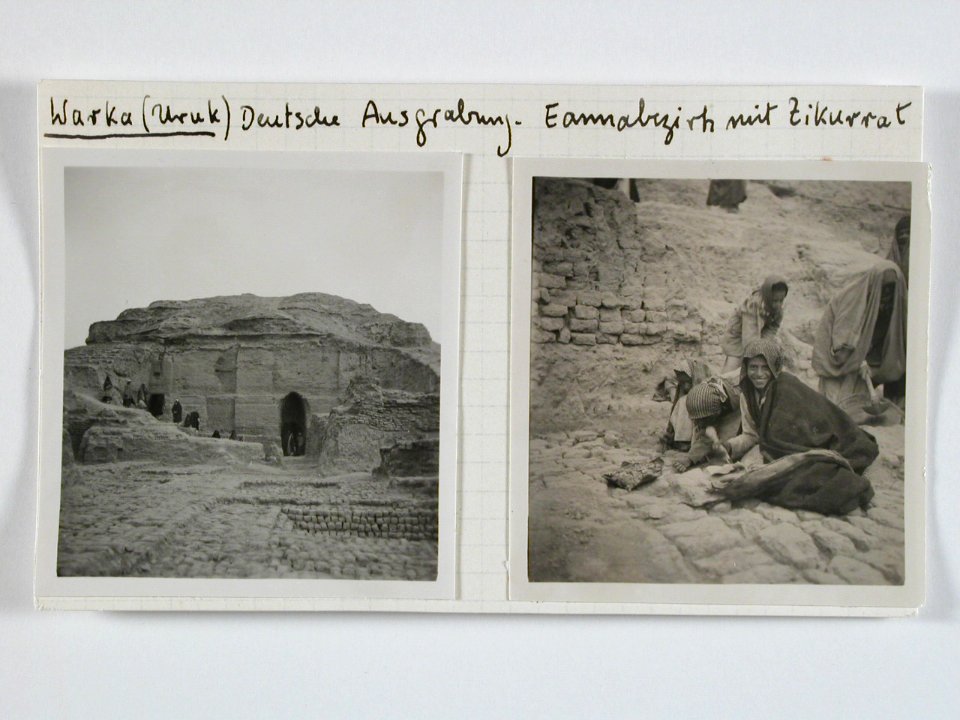 Warka (Uruk) Deutsche Ausgrabung. Eannabezirk mit Zikurrat